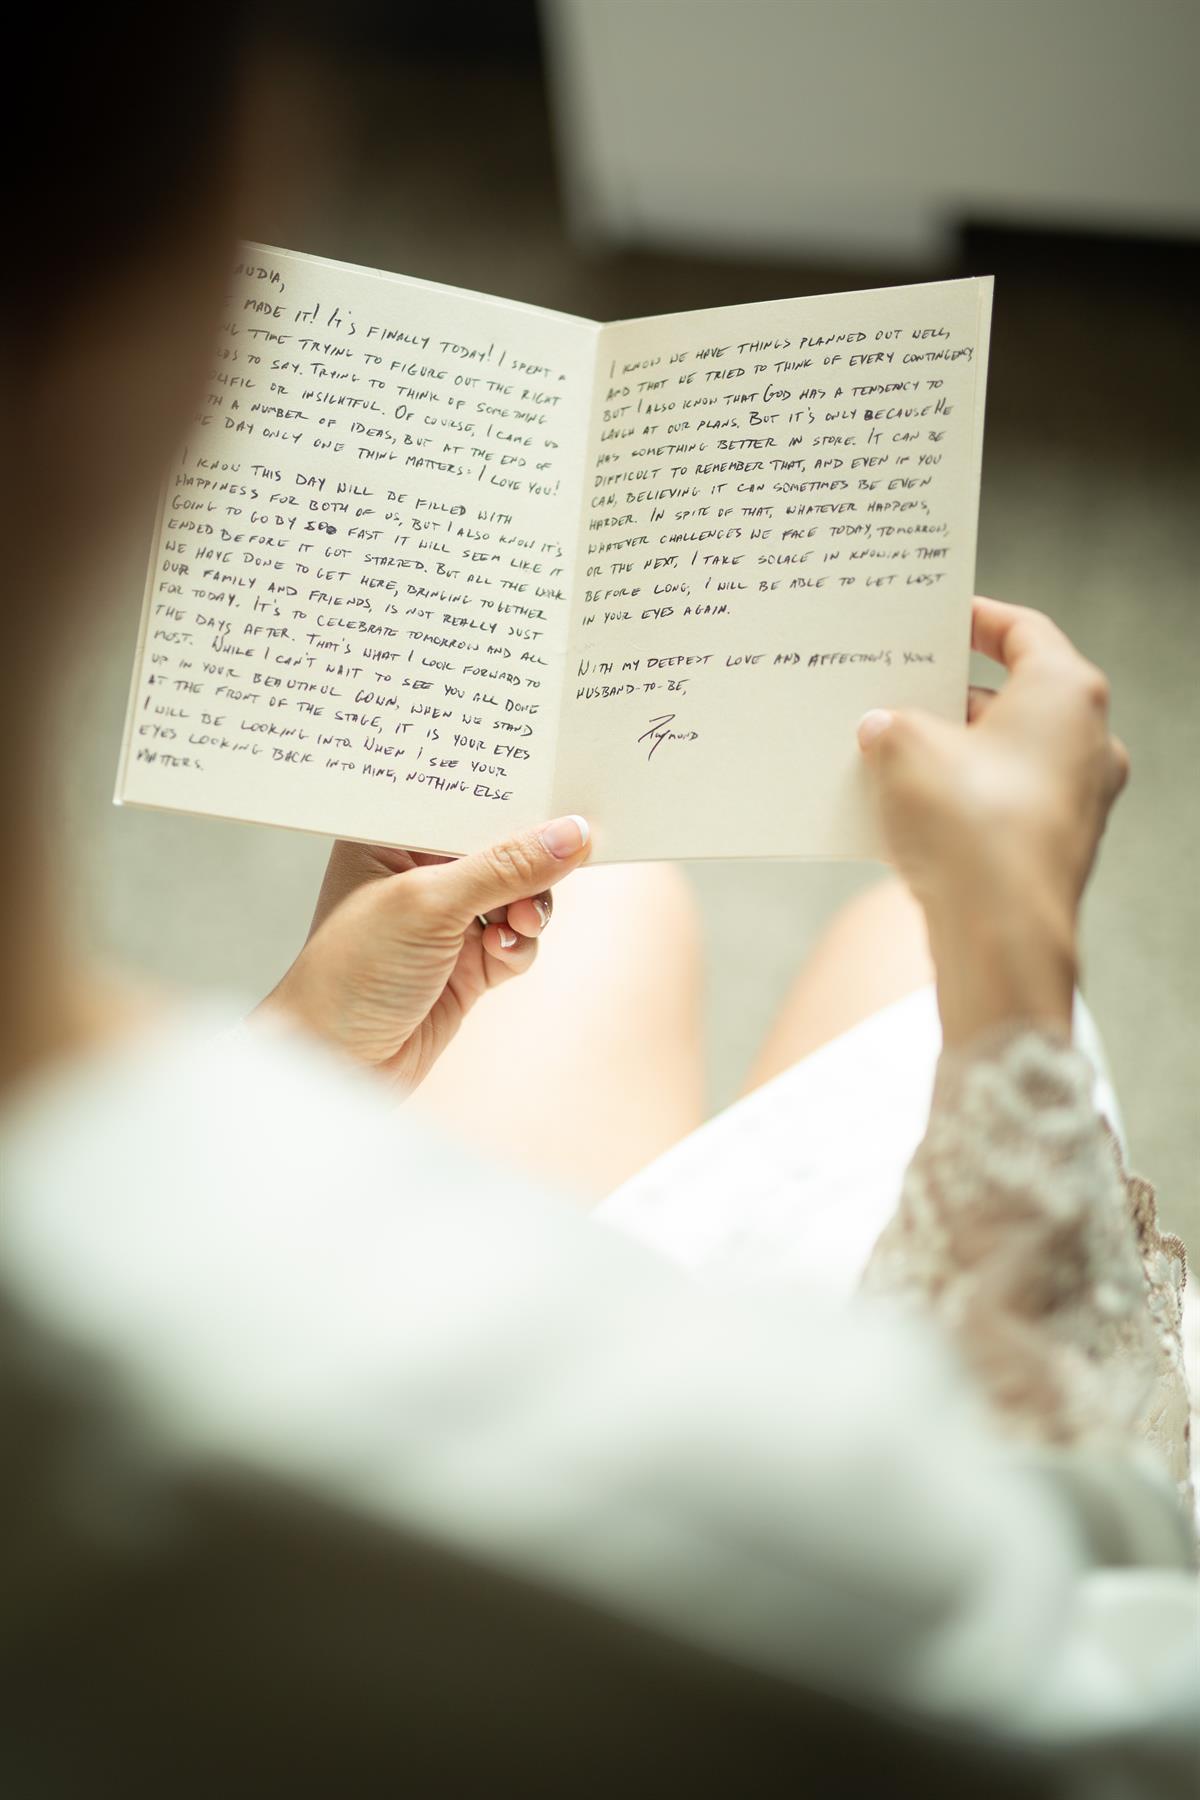 AUDIA,
MADE IT! IT'S FINALLY TODAY! I SPENT A
TIME TRYING TO FIGURE OUT THE RIGHT
TO SAY. TRYING TO THINK OF SOMETHING
OR INSIGHTFUL. OF COURSE, I CAME UP
A NUMBER OF IDEAS, BUT AT THE END OF
DAY ONLY ONE THING MATTERS: I LOVE YOU!
I KNOW THIS DAY WILL BE FILLED WITH
HAPPINESS FOR BOTH OF US, BUT I ALSO KNOW IT'S
GOING TO GO BY SOO FAST IT WILL SEEM LIKE IT
ENDED BEFORE IT GOT STARTED. BUT ALL THE WORK
WE HAVE DONE TO GET HERE, BRINGING TOGETHER
OUR FAMILY AND FRIENDS, IS NOT REALLY JUST
FOR TODAY. IT'S TO CELEBRATE TOMORROW AND ALL
THE DAYS AFTER. THAT'S WHAT I LOOK FORWARD TO
MOST. WHILE I CAN'T WAIT TO SEE YOU ALL DONE
UP IN YOUR BEAUTIFUL GOWN, WHEN WE STAND
AT THE FRONT OF THE STAGE, IT IS YOUR EYES
I WILL BE LOOKING INTO. WHEN I SEE YOUR
EYES LOOKING BACK INTO MINE, NOTHING ELSE
MATTERS.
I KNOW WE HAVE THINGS PLANNED OUT WELL,
AND THAT WE TRIED TO THINK OF EVERY CONTINGENCY
BUT I ALSO KNOW THAT GOD HAS A TENDENCY TO
LAUGH AT OUR PLANS. BUT IT'S ONLY BECAUSE HE
HAS SOMETHING BETTER IN STORE. IT CAN BE
DIFFICULT TO REMEMBER THAT, AND EVEN IF YOU
CAN, BELIEVING IT CAN SOMETIMES BE EVEN
HARDER. IN SPITE OF THAT, WHATEVER HAPPENS,
WHATEVER CHALLENGES WE FACE TODAY, TOMORROW,
OR THE NEXT, I TAKE SOLACE IN KNOWING THAT
BEFORE LONG, I WILL BE ABLE TO GET LOST
IN YOUR EYES AGAIN.
WITH MY DEEPEST LOVE AND AFFECTIONS, YOUR
HUSBAND-TO-BE,
RAYMOND